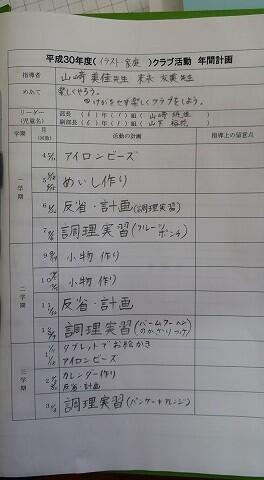 平成30年度(イラスト・家庭)クラブ活動 年間計画
指導者 山崎 美佳先生 末永 友美先生
めあて 楽しくやろう。
けがをせず楽しくクラブをしよう。
リーダー 部長 (6)年(1)組(山崎
(児童名) 副部長(6)年(1)組(山下
学期 月(回数) 活動の計画 指導上の留意点
一学期
4 アイロンビーズ
5 めいし作り
6 反省・計画(調理実習)
7 調理実習(フルーツポンチ)
二学期
9 小物作り
10 小物作り
11 反省・計画
12 調理実習(バームクーヘンのかざりつけ)
三学期
1 タブレットでお絵かき
アイロンビーズ
2 カレンダー作り
反省・計画
3 調理実習(パンケーキアレンジ)